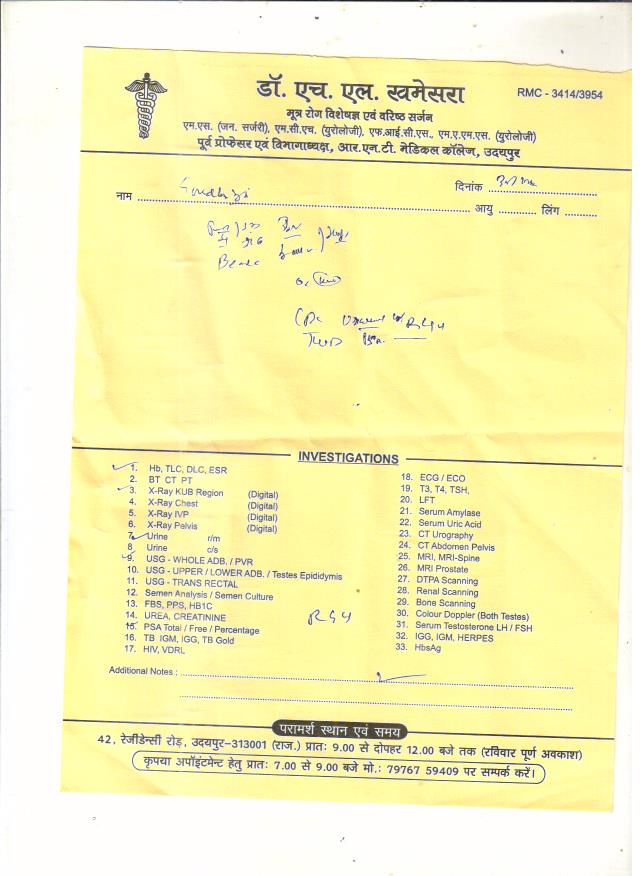 डॉ. एच. एल. खमेसरा
RMC - 3414/3954
मूत्र रोग विशेषज्ञ एवं वरिष्ठ सर्जन
एम.एस. (जन. सर्जरी), एम.सी.एच. (युरोलोजी), एफ.आई.सी.एस., एम.ए.एम.एस. (युरोलोजी)
पूर्व प्रोफेसर एवं विभागाध्यक्ष, आर.एन.टी. मेडिकल कॉलेज, उदयपुर
दिनांक
नाम आयु लिंग
INVESTIGATIONS
1. Hb, TLC, DLC, ESR
2. BT CT PT
3. X-Ray KUB Region (Digital)
4. X-Ray Chest (Digital)
5. X-Ray IVP (Digital)
6. X-Ray Pelvis (Digital)
7. Urine r/m
8. Urine c/s
9. USG - WHOLE ADB. / PVR
10. USG - UPPER / LOWER ADB. / Testes Epididymis
11. USG - TRANS RECTAL
12. Semen Analysis / Semen Culture
13. FBS, PPS, HB1C
14. UREA, CREATININE
15. PSA Total / Free / Percentage
16. TB IGM, IGG, TB Gold
17. HIV, VDRL
18. ECG / ECO
19. T3, T4, TSH,
20. LFT
21. Serum Amylase
22. Serum Uric Acid
23. CT Urography
24. CT Abdomen Pelvis
25. MRI, MRI-Spine
26. MRI Prostate
27. DTPA Scanning
28. Renal Scanning
29. Bone Scanning
30. Colour Doppler (Both Testes)
31. Serum Testosterone LH / FSH
32. IGG, IGM, HERPES
33. HbsAg
Additional Notes :
परामर्श स्थान एवं समय
42, रेजीडेन्सी रोड़, उदयपुर-313001 (राज.) प्रातः 9.00 से दोपहर 12.00 बजे तक (रविवार पूर्ण अवकाश)
कृपया अपॉइंटमेन्ट हेतु प्रातः 7.00 से 9.00 बजे मो.: 79767 59409 पर सम्पर्क करें।